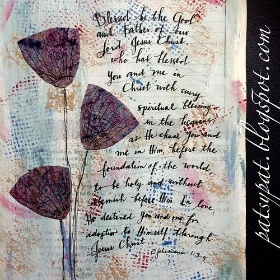 Blessed be the God
and Father of our
Lord Jesus Christ,
who has blessed
you and me in
Christ with every
spiritual blessing
in the heavens,
as He chose you and
me in Him, before the
foundation of the world
to be holy and without
blemish before Him. In love,
He destined you and me for
adoption to Himself through
Jesus Christ.
Ephesians 1:3-5
patsypat.blogspot.com